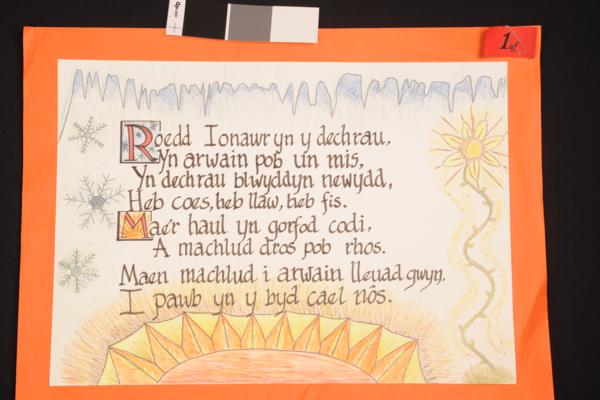 Roedd Ionawr yn y dechrau,
Yn arwain pob un mis,
Yn dechrau blwyddyn newydd,
Heb coes, heb llaw, heb fis.
Mae'r haul yn gorfod codi,
A machlud dros pob rhos.
Maen machlud i arwain lleuad gwyn,
I pawb yn y byd cael nôs.